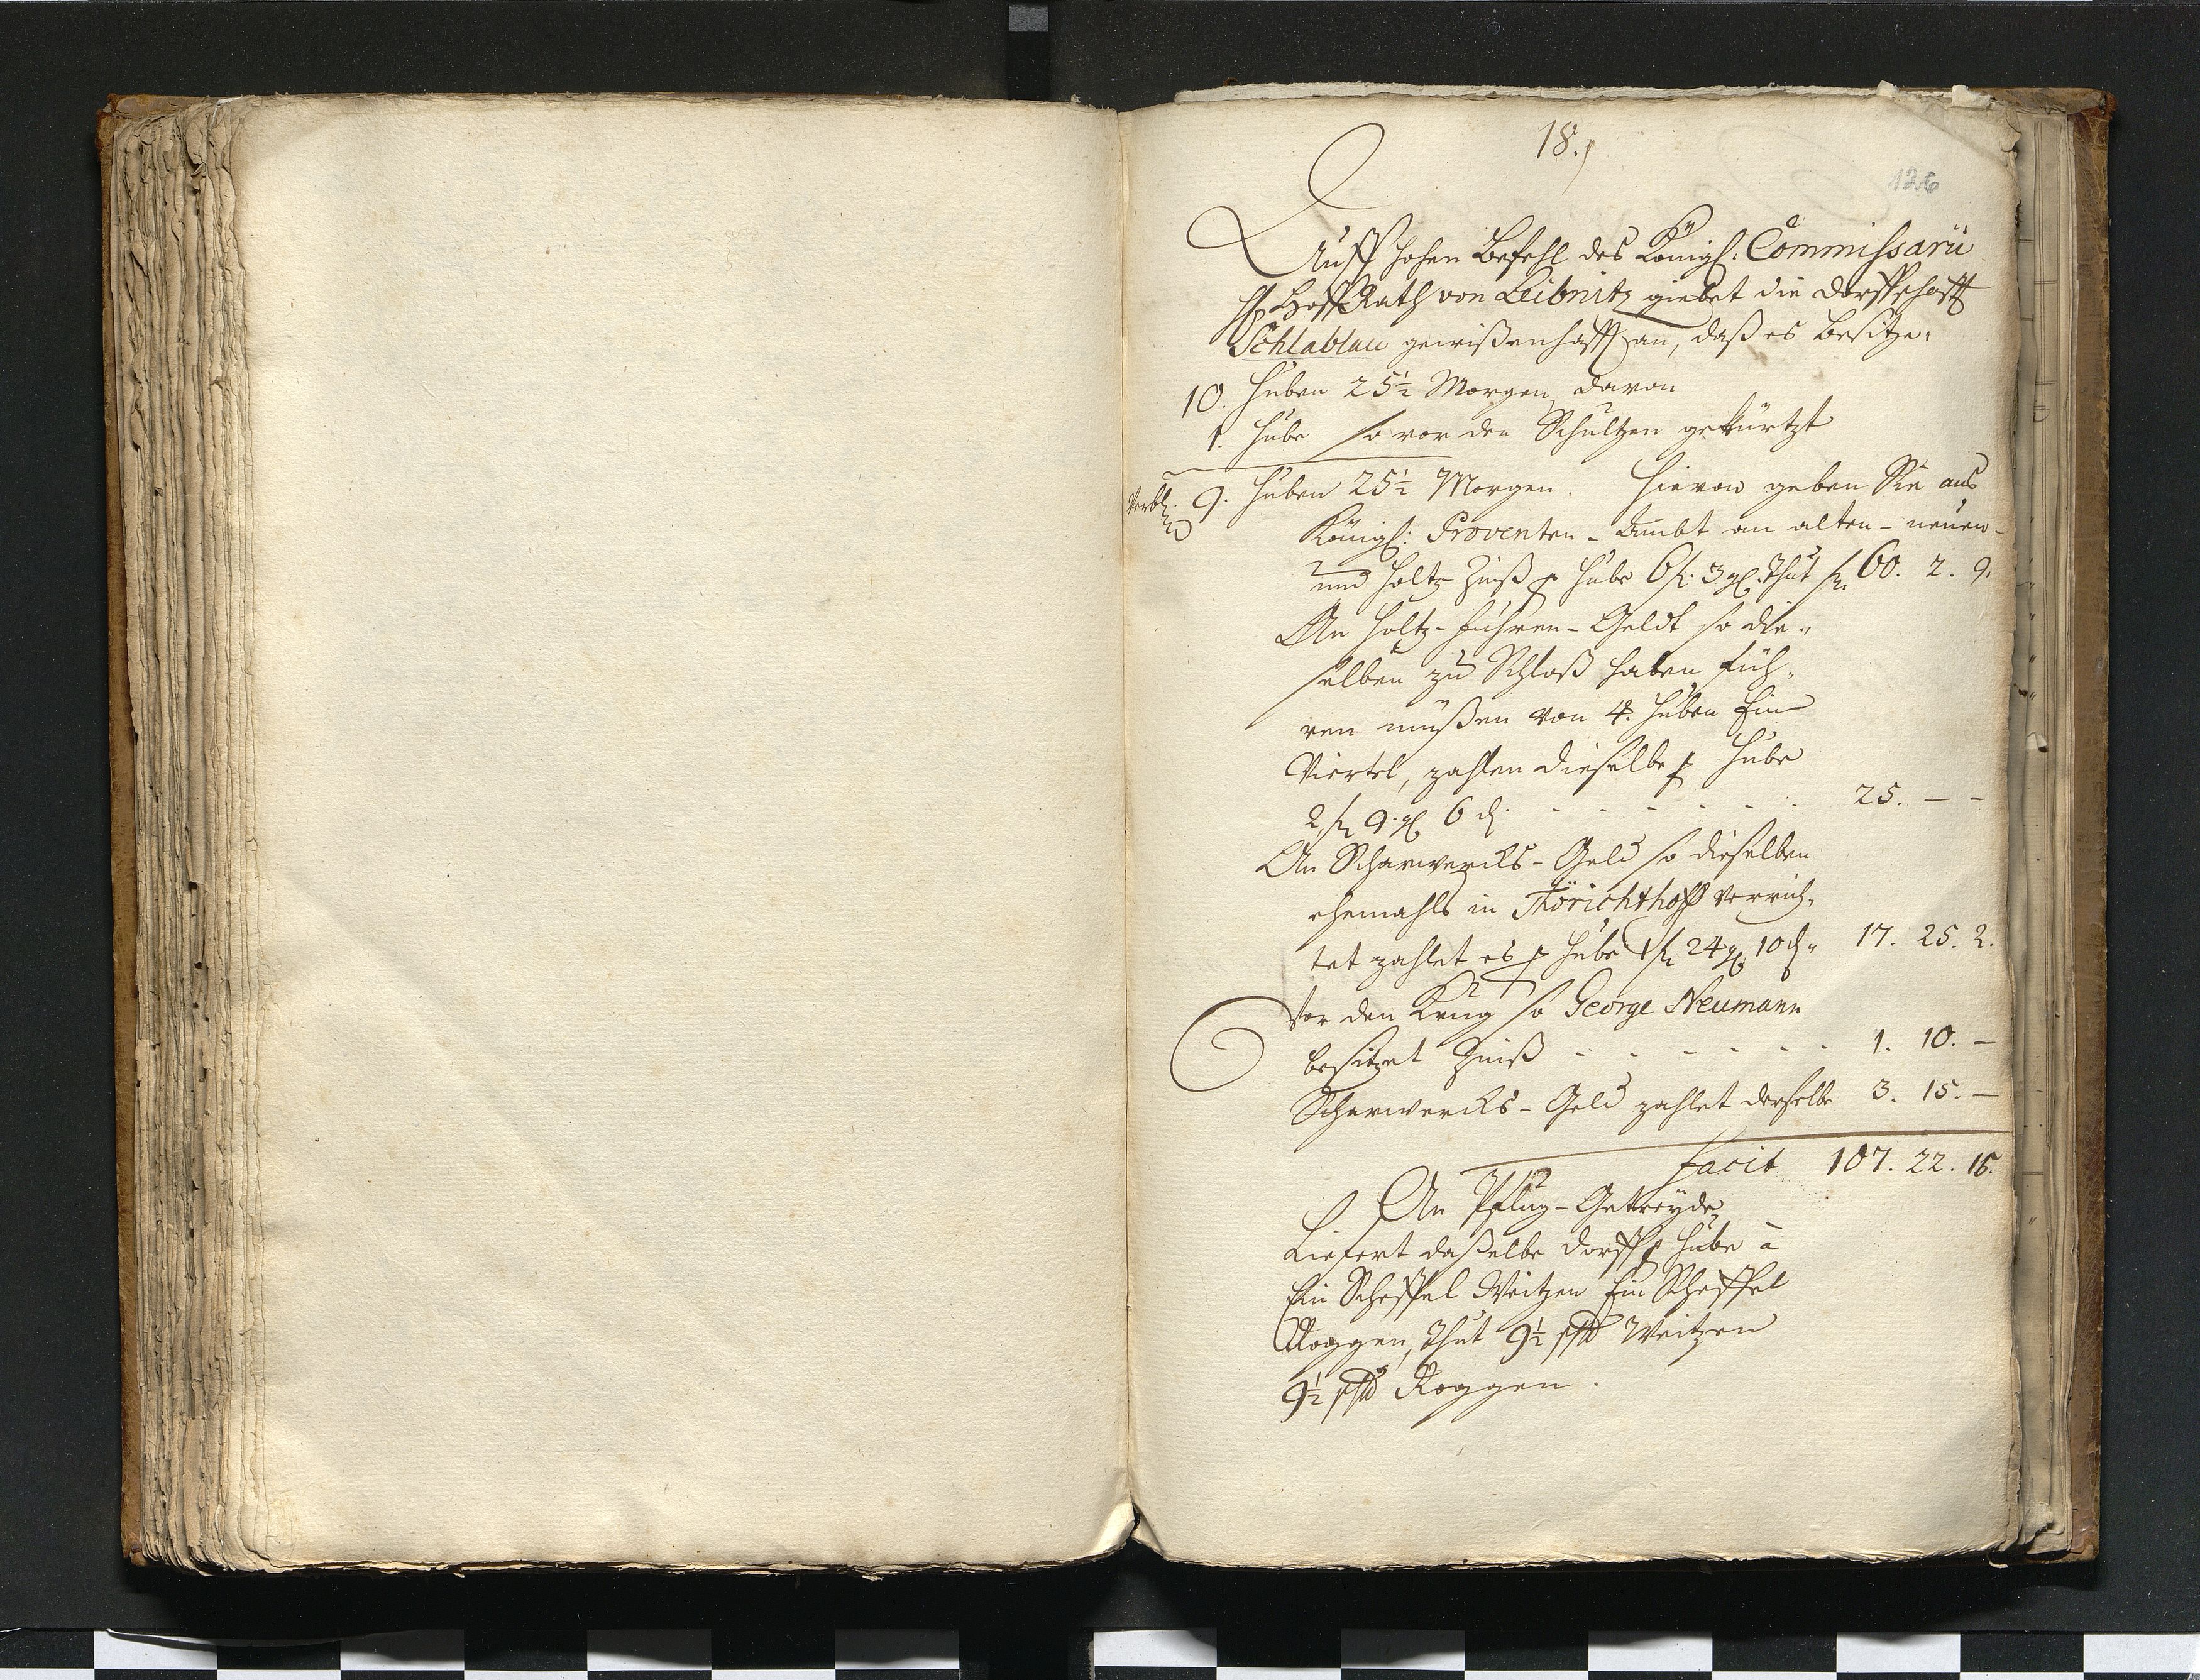 18.
126
Auff hohen Befehl des Königl: Commissarii
H. Hoff Rath von Leibnitz giebet die Dorffschafft
Schlablau gewißenhafft an, daß es besitze.
10. Huben 25½ Morgen, davon
1. Hube so vor den Schultzen gekürtzt
Verbl. 9. Huben 25½ Morgen. Hievon geben Sie ans
Königl: Proventen-Ambt an alten- neuen-
und Holtz Zinß p Hube 6 fl. 3 gl. Thut fl. 60. 2. 9.
An Holtz-Fuhren-Geldt so die-
selben zu Schloß haben füh-
ren müßen von 4. Huben Ein
Viertel, zahlen dieselbe p Hube
2 fl 9 gl 6 d. - - - - - - 25. — -
An Scharwercks-Geld so dieselben
ehemahls in Thörichthoff verrich-
tet zahlet es p Hube 1 fl 24 gl 10 d. 17. 25. 2.
Vor den Krug so George Neumann
besitzet Zinß - - - - - - 1. 10. —
Scharwercks-Geld zahlet derselbe 3. 15. —
facit 107. 22. 15.
An Pflug-Getreyde
Liefert daßelbe Dorff p Hube à
Ein Scheffel Weitzen Ein Scheffel
Roggen, Thut 9½ schl Weitzen
9½ schl Roggen.